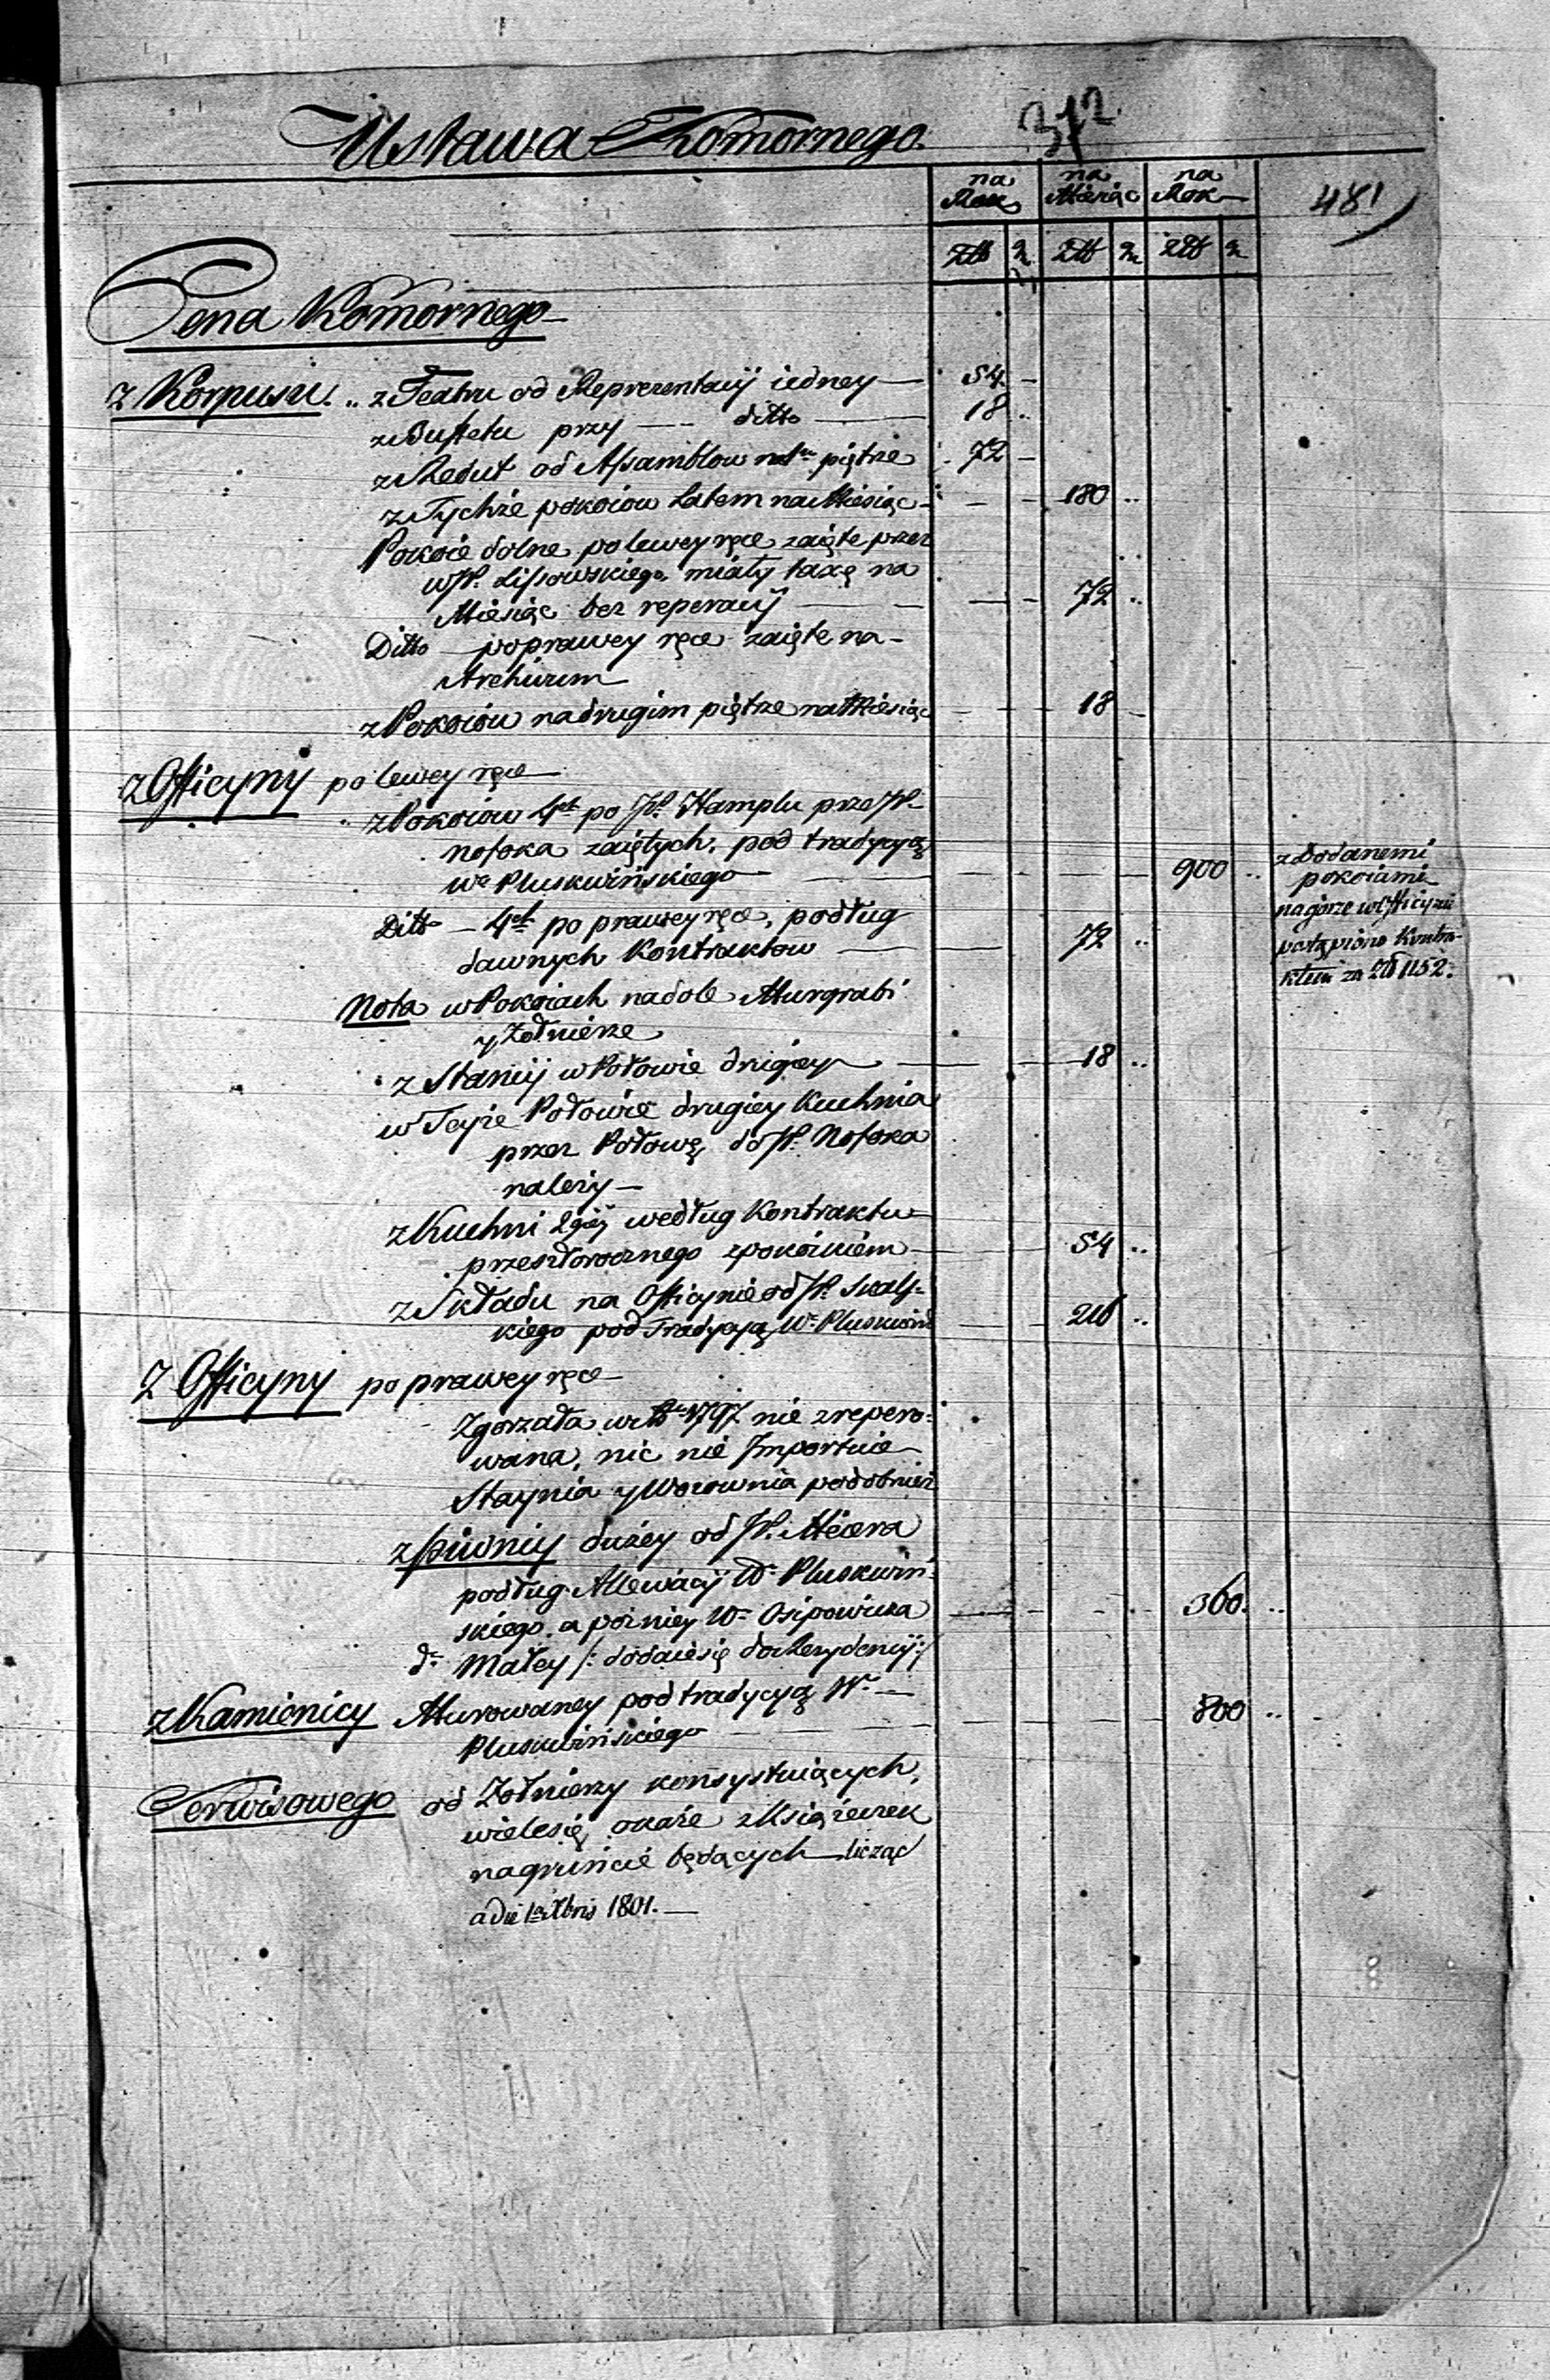 Ustawa Komornego.
372
na Rok na Miesiąc na Rok
481
Złł g Złł gr Złł g
Cena Komornego
z Korpusu. .. z Teatru od Reprezentacij iedney — 54. -
z Bufetu przy — ditto — 18 ..
z Redut od Assamblow na 1m piętrze 72 -
z Tychże pokoiow Latem na Miesiąc - 180 ..
Pokoie dolne po lewey ręce zaięte przez
W JP. Lissowskiego miały taxę na
Miesiąc bez reperacij — 72 ..
Ditto — po prawey ręce zaięte na -
Archiwum
z Pokoiow na drugim piętrze na Miesiąc 18 -
z Officyny po lewey ręce
z Pokoiow 4ch po JP. Hamplu prze JP.
Nofoka zaiętych, pod tradycyą
Wo Pluskwińskiego — 900 ..
z dodanemi
pokoiami
na górze w Officynie
postąpiono Kontra-
ktem za Złł 1152.
Ditto — 4ch po prawey ręce, podług
dawnych Kontraktow — 72 ..
Nota w Pokoiach na dole Murgrabi
y Żołnierze
z Stancij w Połowie drugiey — 18 ..
w Teyże Połowie drugiey Kuchnia
przez Połowę do JP. Nofoka
należy —
z Kuchni 2giey według Kontraktu
przeszłorocznego z pokoikiem — 54 ..
z Składu na Officynie od JP. Skals-
kiego pod Tradycyą Wo Pluskwiń 216 ..
Z Officyny po prawey ręce
Zgorzała w Ru 1797 nie zrepero-
wana, nic nie Importuie
Staynia y Wozownia podobnież
z piwnicy dużey od JP. Meiera
podług Allewacij Wo Pluskwiń-
skiego, a pozniey Wo Osipowicza 360. ..
do Małey /: dodaie się do Rezydencij :/
z Kamienicy Murowaney pod tradycyą Wo
Pluskwińskiego — 800 ..
Serwisowego od Żołnierzy konsystuiących,
wiele się okaże z Książeczek
na gruncie będących licząc
a die 1a Xbris 1801. —